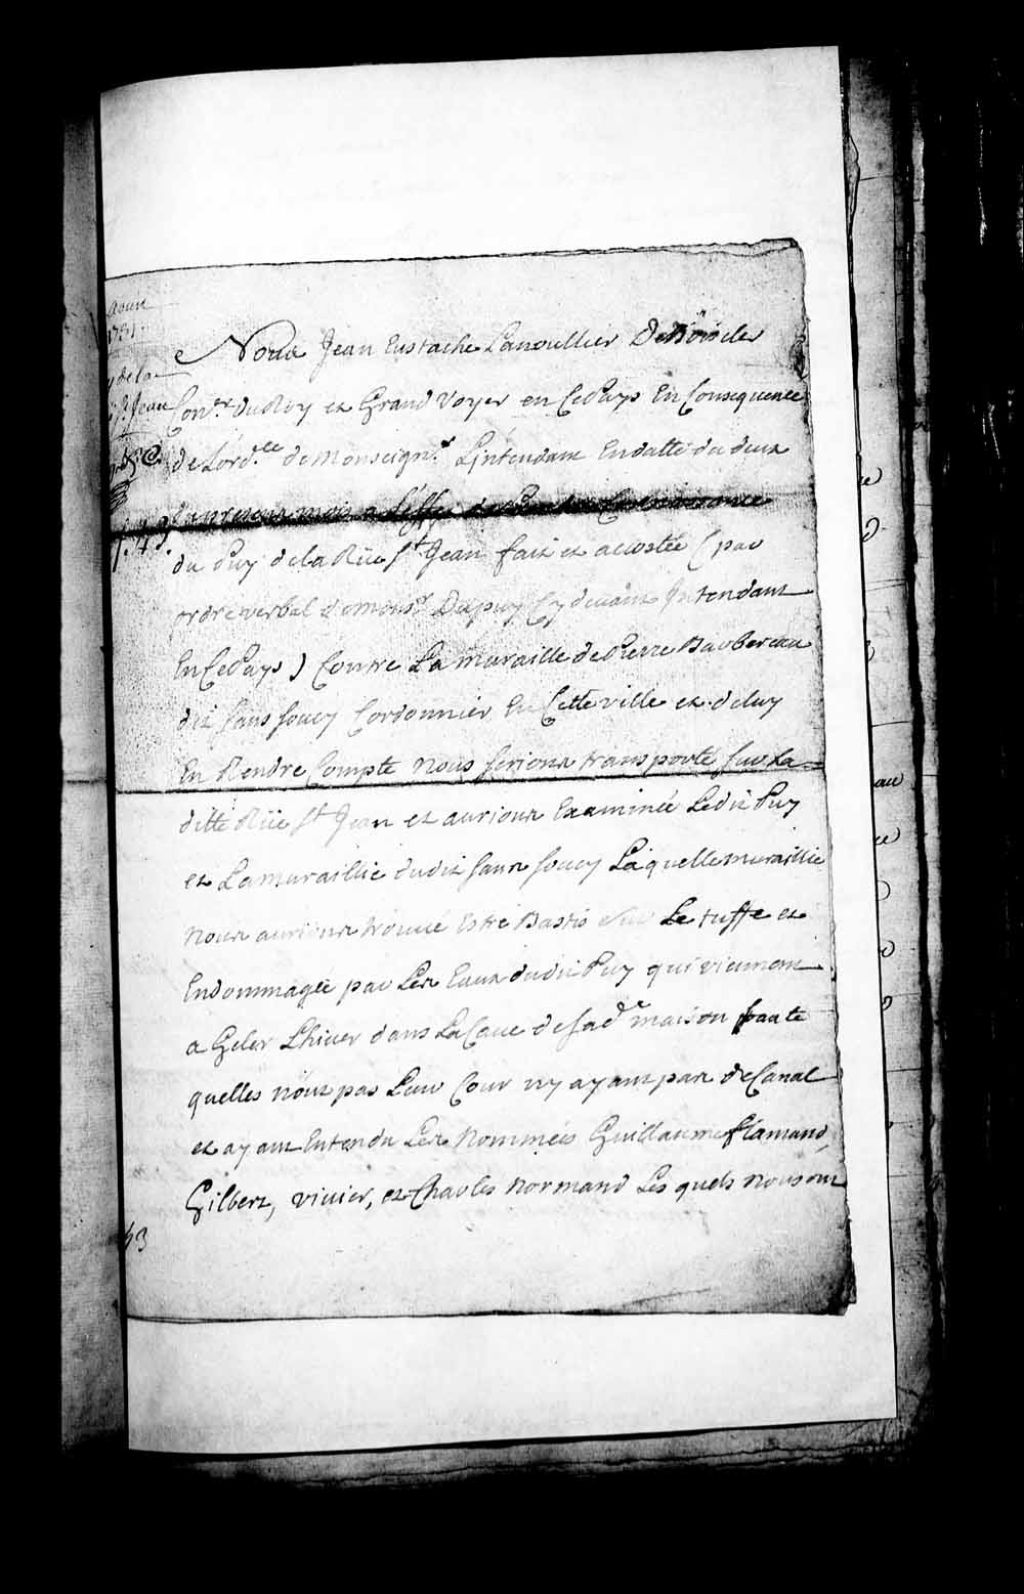 Aoust
1731.
y de la
S.t Jean
Nous Jean Eustache Lanoullier DeBoiscler
Con.er du Roy et Grand Voyer en Ce Pays En Consequence
de Lord.ce de Monseign.r L'jntendant En datte du deux
du present mois a L'effet de Prendre Connoissance
du Puy de la Rüe S.t Jean fait et accostée (par
ordre verbal de Mons.r Dupuy Cy devant Jntendant
En Ce Pays) Contre La muraille de Pierre Barbereau
dit Sans Soucy Cordonnier En Cette ville et de luy
En Rendre Compte nous serions transporté Sur La
ditte Rüe S.t Jean et aurions Examinée Ledit Puy
et La muraillie dudit Sans Soucy Laquelle muraillie
nous aurions trouvé Estre Bastie sur Le tuffe et
Endommagée par Les Eaux dudit Puy qui viennent
a Geler Lhiver dans La Cave de Sad.e maison faute
quelles n'ont pas Leur Cour ny ayant pas de Canal
et ayant Entendu Les Nommées Guillaume flamand,
Gilbert, vivier, et Charles Normand Les quels nous ont